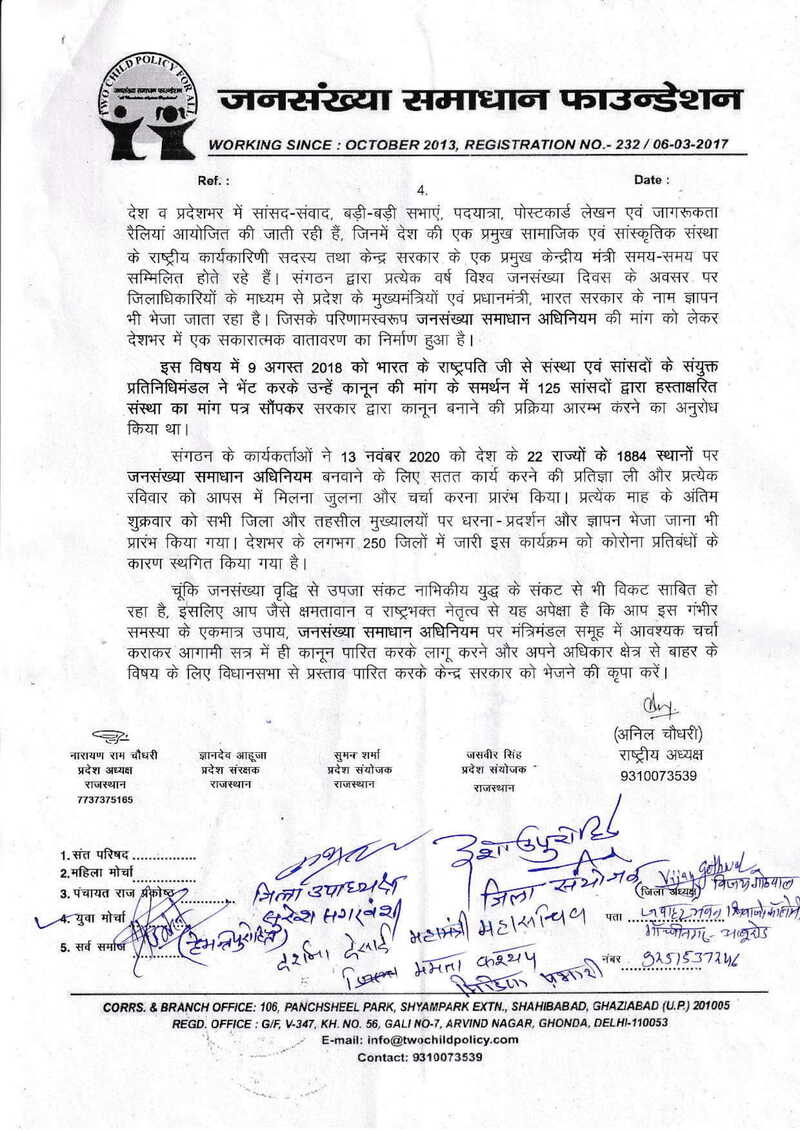 TWO CHILD POLICY FOR ALL
जनसंख्या समाधान फाउन्डेशन
जनसंख्या समाधान फाउन्डेशन
WORKING SINCE : OCTOBER 2013, REGISTRATION NO.- 232 / 06-03-2017
Ref. : Date :
4.
देश व प्रदेशभर में सांसद-संवाद, बड़ी-बड़ी सभाएं, पदयात्रा, पोस्टकार्ड लेखन एवं जागरूकता
रैलियां आयोजित की जाती रही हैं, जिनमें देश की एक प्रमुख सामाजिक एवं सांस्कृतिक संस्था
के राष्ट्रीय कार्यकारिणी सदस्य तथा केन्द्र सरकार के एक प्रमुख केन्द्रीय मंत्री समय-समय पर
सम्मिलित होते रहे हैं। संगठन द्वारा प्रत्येक वर्ष विश्व जनसंख्या दिवस के अवसर पर
जिलाधिकारियों के माध्यम से प्रदेश के मुख्यमंत्रियों एवं प्रधानमंत्री, भारत सरकार के नाम ज्ञापन
भी भेजा जाता रहा है। जिसके परिणामस्वरूप जनसंख्या समाधान अधिनियम की मांग को लेकर
देशभर में एक सकारात्मक वातावरण का निर्माण हुआ है।
इस विषय में 9 अगस्त 2018 को भारत के राष्ट्रपति जी से संस्था एवं सांसदों के संयुक्त
प्रतिनिधिमंडल ने भेंट करके उन्हें कानून की मांग के समर्थन में 125 सांसदों द्वारा हस्ताक्षरित
संस्था का मांग पत्र सौंपकर सरकार द्वारा कानून बनाने की प्रक्रिया आरम्भ करने का अनुरोध
किया था।
संगठन के कार्यकर्ताओं ने 13 नवंबर 2020 को देश के 22 राज्यों के 1884 स्थानों पर
जनसंख्या समाधान अधिनियम बनवाने के लिए सतत कार्य करने की प्रतिज्ञा ली और प्रत्येक
रविवार को आपस में मिलना जुलना और चर्चा करना प्रारंभ किया। प्रत्येक माह के अंतिम
शुक्रवार को सभी जिला और तहसील मुख्यालयों पर धरना-प्रदर्शन और ज्ञापन भेजा जाना भी
प्रारंभ किया गया। देशभर के लगभग 250 जिलों में जारी इस कार्यक्रम को कोरोना प्रतिबंधों के
कारण स्थगित किया गया है।
चूंकि जनसंख्या वृद्धि से उपजा संकट नाभिकीय युद्ध के संकट से भी विकट साबित हो
रहा है, इसलिए आप जैसे क्षमतावान व राष्ट्रभक्त नेतृत्व से यह अपेक्षा है कि आप इस गंभीर
समस्या के एकमात्र उपाय, जनसंख्या समाधान अधिनियम पर मंत्रिमंडल समूह में आवश्यक चर्चा
कराकर आगामी सत्र में ही कानून पारित करके लागू करने और अपने अधिकार क्षेत्र से बाहर के
विषय के लिए विधानसभा से प्रस्ताव पारित करके केन्द्र सरकार को भेजने की कृपा करें।
(अनिल चौधरी)
राष्ट्रीय अध्यक्ष
9310073539
नारायण राम चौधरी ज्ञानदेव आहूजा सुमन शर्मा जसवीर सिंह
प्रदेश अध्यक्ष प्रदेश संरक्षक प्रदेश संयोजक प्रदेश संयोजक
राजस्थान राजस्थान राजस्थान राजस्थान
7737375165
1. संत परिषद ...............
2. महिला मोर्चा ...............
3. पंचायत राज प्रकोष्ठ ............... जिला उपाध्यक्ष जिला संयोजक (जिला अध्यक्ष) Vijay Gothwal विजय गोठवाल
4. युवा मोर्चा ............... (हेमन्त पुरोहित) दर्शना देसाई महामंत्री महासचिव पता
5. सर्व समाज ममता कश्यप नंबर 9251537246
CORRS. & BRANCH OFFICE: 106, PANCHSHEEL PARK, SHYAMPARK EXTN., SHAHIBABAD, GHAZIABAD (U.P.) 201005
REGD. OFFICE : G/F, V-347, KH. NO. 56, GALI NO-7, ARVIND NAGAR, GHONDA, DELHI-110053
E-mail: info@twochildpolicy.com
Contact: 9310073539